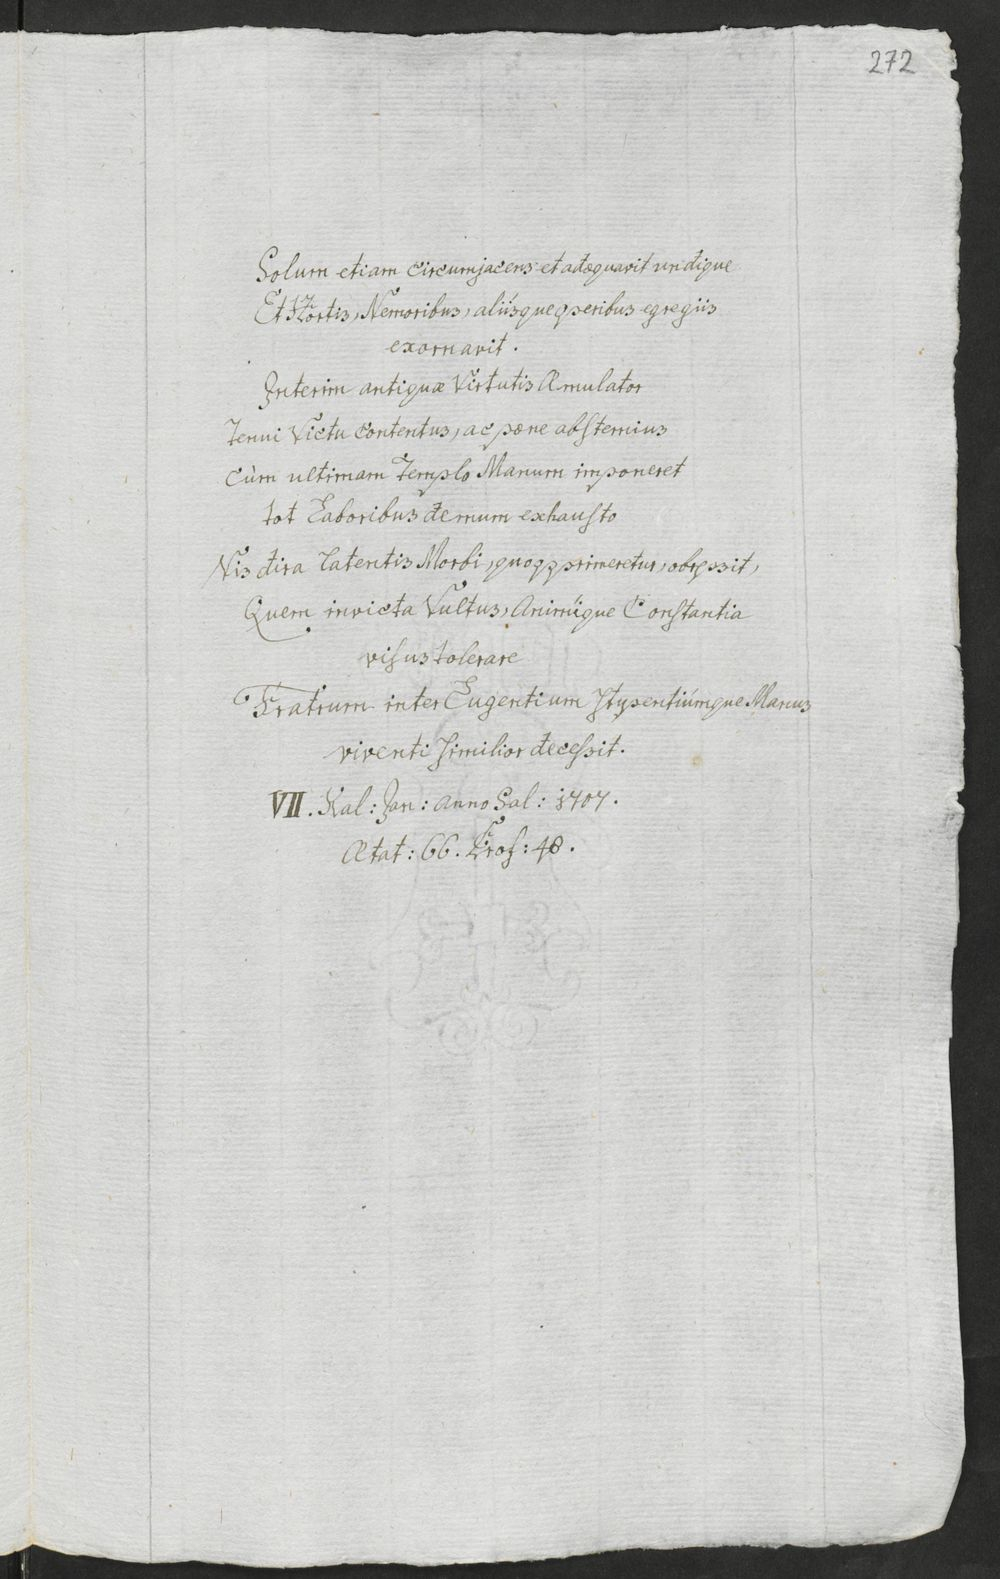 272
Solum etiam circumjacens et adæquavit undique
Et Hortis, Nemoribus, aliisque operibus egregiis
exornavit.
Interim antiquæ Virtutis Æmulator
Tenui Victu contentus, ac pæne abstemius
Cùm ultimam Templo Manum imponeret
tot Laboribus demum exhausto
Vis dira latentis Morbi, opprimeretur, obrepsit,
Quem invicta Vultus, Animique Constantia
visus tolerare
Fratrum inter Lugentium Stupentiúmque Manus
viventi similior decessit.
VII. Kal: Jan: anno Sal: 1707.
Ætat: 66. Prof: 48.